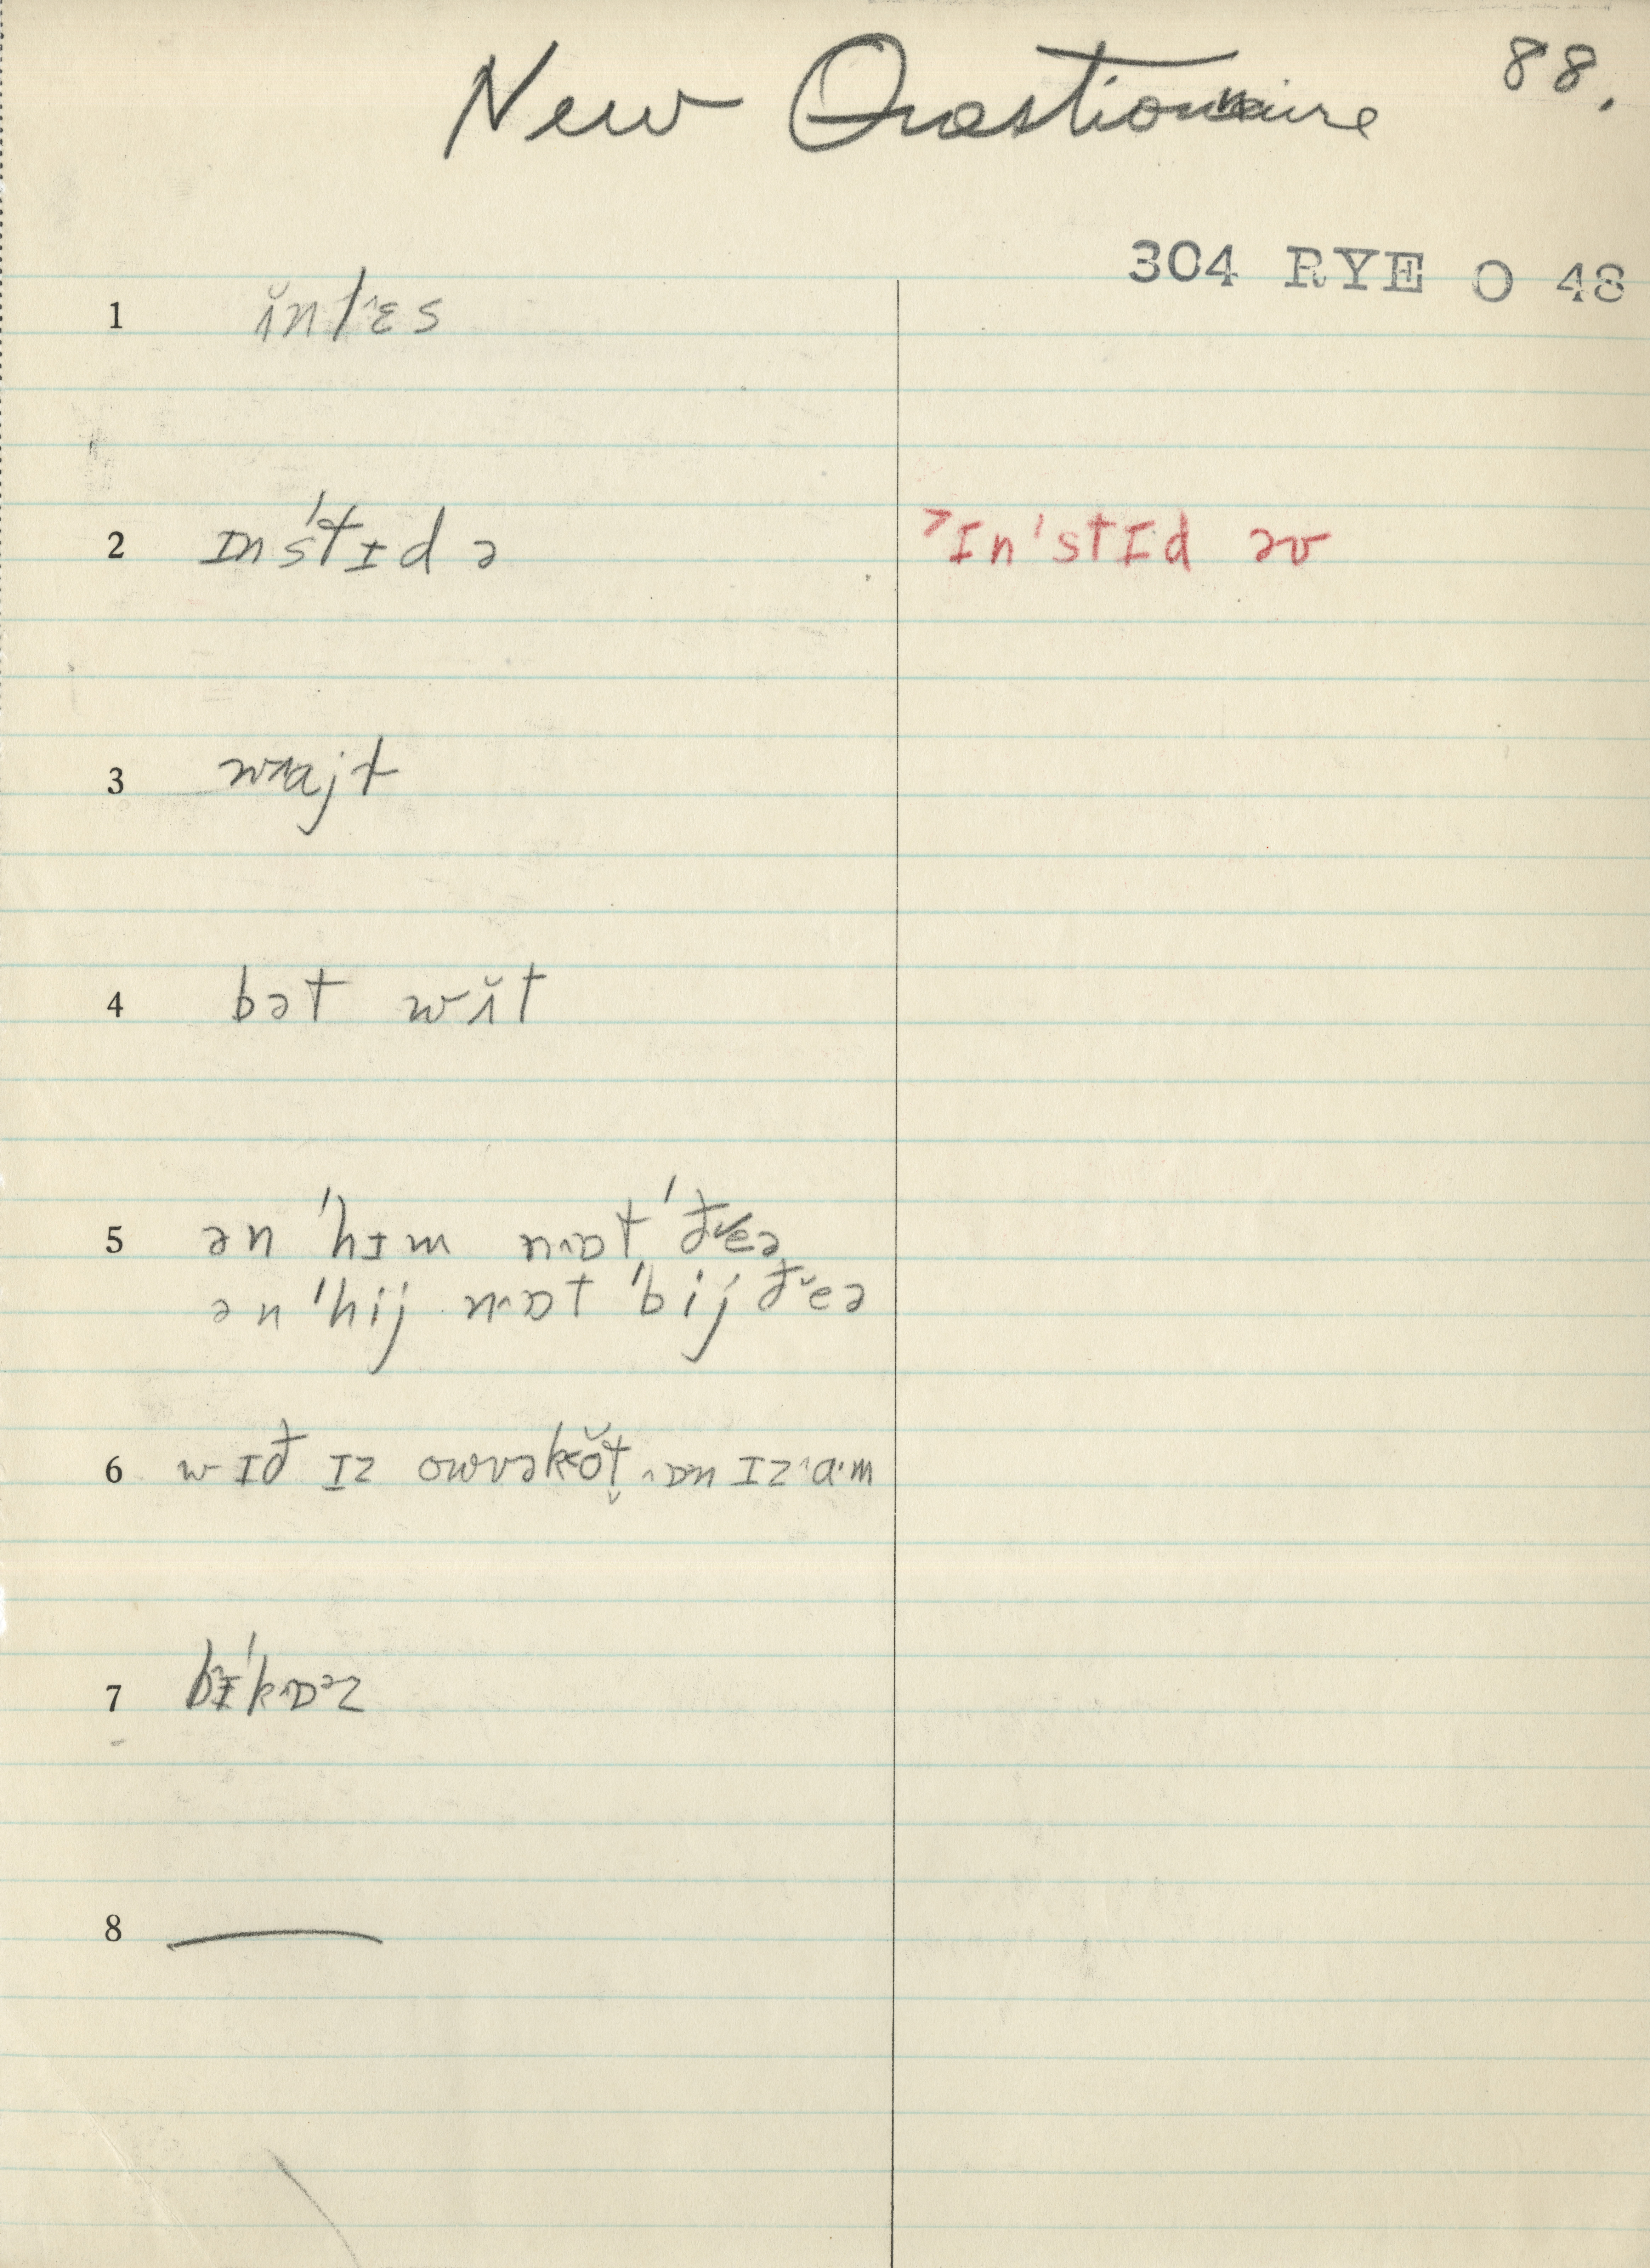 New Questionnaire
88.
304 RYE O 48
1 ɨ̆nl˄ɛs
2 ɪn'stɪd ə
>ɪn'stɪd əv
3 wʌajt
4 bət wɨ̆t
5 ən 'hɪm n˄ɒt 'đɛ˅ə
ən 'hij n˄ɒt 'bij đe˅ə
6 wɪđ ɪz owvək˂ŏt̬ ˄ɒn ɪz ˄a·m
7 bɪ'k˄ɒᵊz
8 —